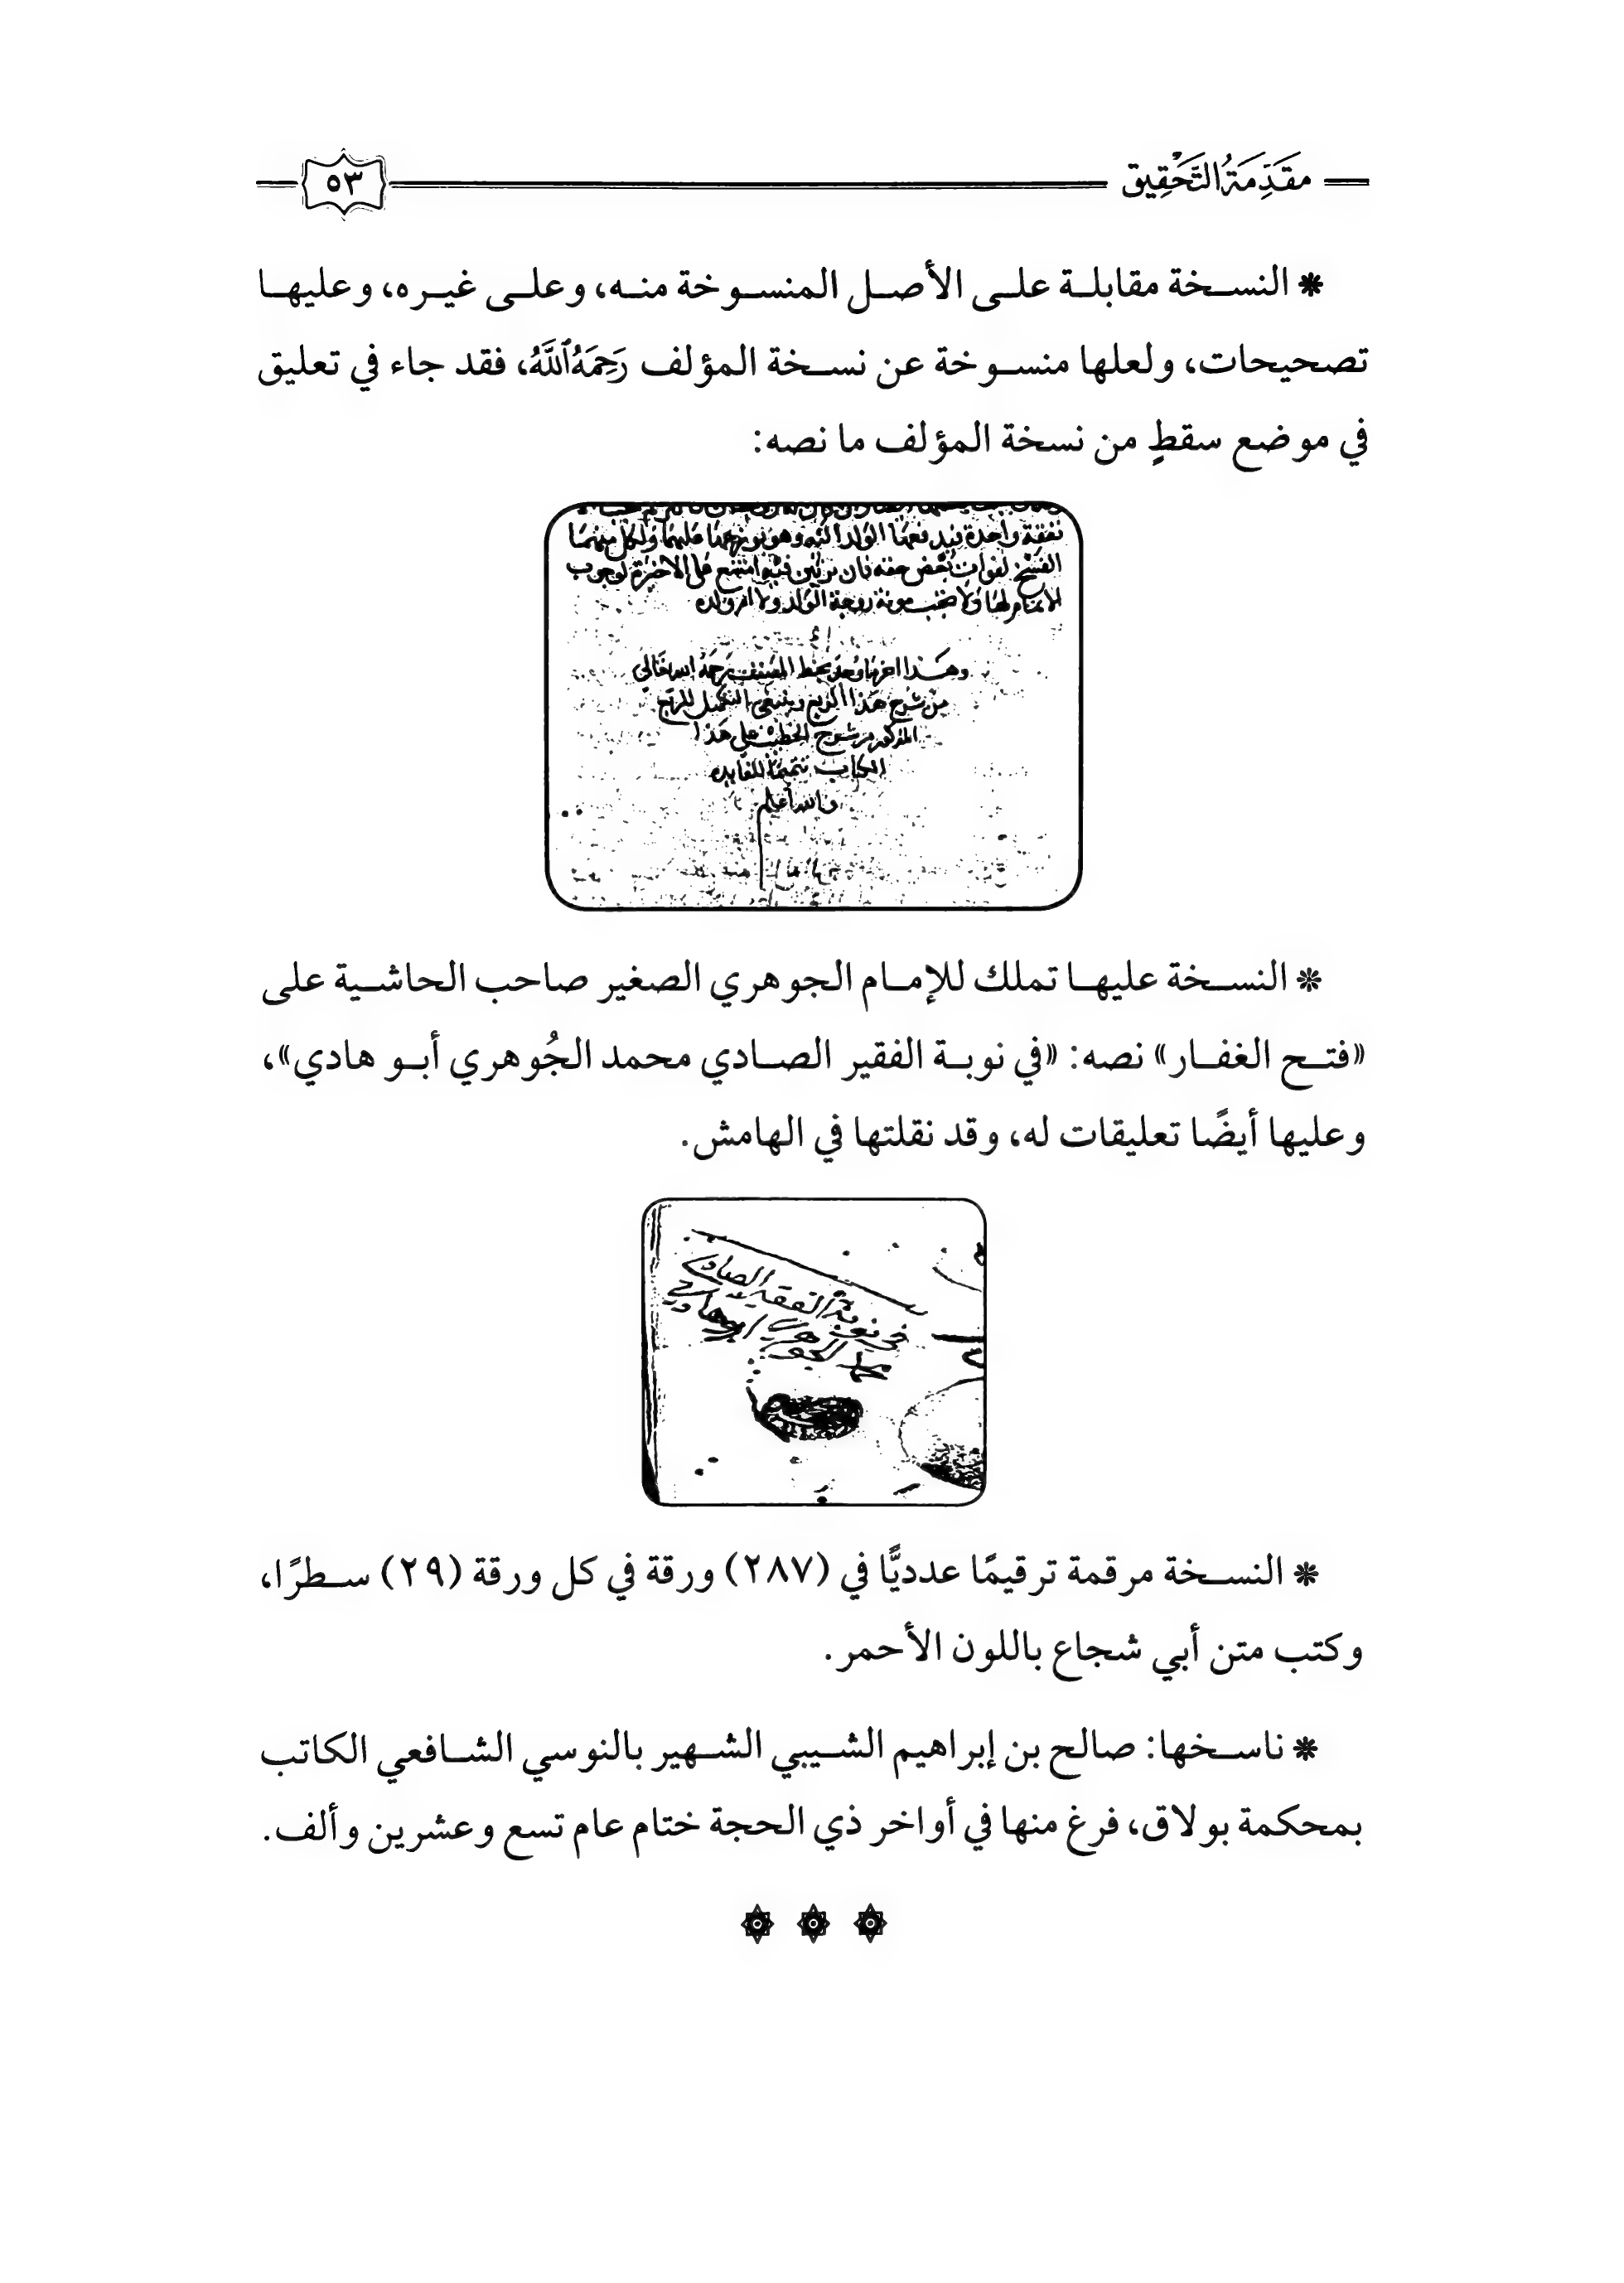 مُقَدِّمَةُ التَّحْقِيق
٥٣
❋ النسخة مقابلة على الأصل المنسوخة منه، وعلى غيره، وعليها
تصحيحات، ولعلها منسوخة عن نسخة المؤلف رَحِمَهُ ٱللَّهُ، فقد جاء في تعليق
في موضع سقطٍ من نسخة المؤلف ما نصه:
نفقة واحدة
الفسخ لفوات بعض حقه فان
زوجة الولد ولا
وهذا اخر ما وجد بخط المصنف رحمه الله تعالى
من شرح هذا الربع وينبغي التكميل للربع
المذكور من شرح الخطيب على هذا
الكتاب تتميما للفايده
والله أعلم
❋ النسخة عليها تملك للإمام الجوهري الصغير صاحب الحاشية على
«فتح الغفار» نصه: «في نوبة الفقير الصادي محمد الجُوهري أبو هادي»،
وعليها أيضًا تعليقات له، وقد نقلتها في الهامش.
في نوبة الفقير الصادي
محمد الجوهري ابوهادي
❋ النسخة مرقمة ترقيمًا عدديًّا في (٢٨٧) ورقة في كل ورقة (٢٩) سطرًا،
وكتب متن أبي شجاع باللون الأحمر.
❋ ناسخها: صالح بن إبراهيم الشيبي الشهير بالنوسي الشافعي الكاتب
بمحكمة بولاق، فرغ منها في أواخر ذي الحجة ختام عام تسع وعشرين وألف.